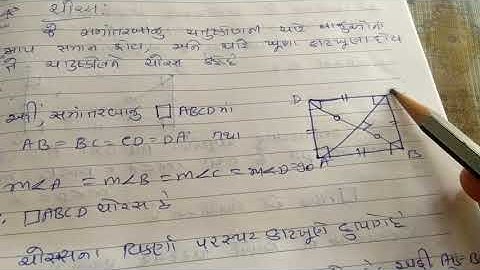 * ચોરસ:
જે સમાંતરબાજુ ચતુષ્કોણની ચારે બાજુઓના
માપ સમાન હોય, અને ચારે ખૂણા કાટખૂણા હોય
તે ચતુષ્કોણને ચોરસ કહે છે
અહીં, સમાંતરબાજુ □ABCD માં
D
AB = BC = CD = DA તથા
m∠A = m∠B = m∠C = m∠D = 90
A
B
∴ □ABCD ચોરસ છે
ચોરસના વિકર્ણો પરસ્પર કાટખૂણે દુભાગે છે